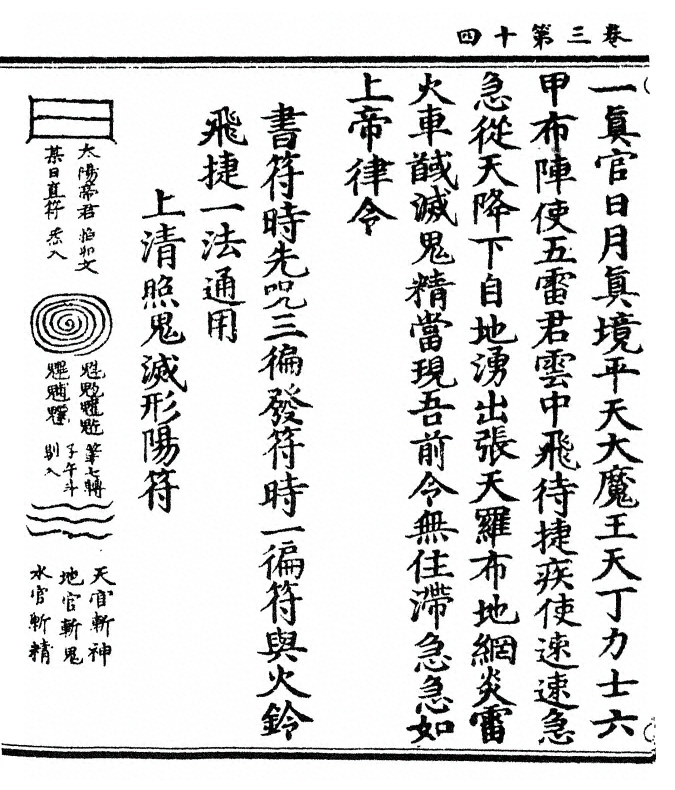 卷三第十四
一眞官日月眞境平天大魔王天丁力士六
甲布陣使五雷君雲中飛待捷疾使速速急
急從天降下自地湧出張天羅布地網炎雷
火車馘滅鬼精當現吾前令無住滯急急如
上帝律令
書符時先呪三徧發符時一徧符與火鈴
飛捷一法通用
上清照鬼滅形陽符
太陽帝君
某日直符
筆七轉
子午斗
天官斬神
地官斬鬼
水官斬精